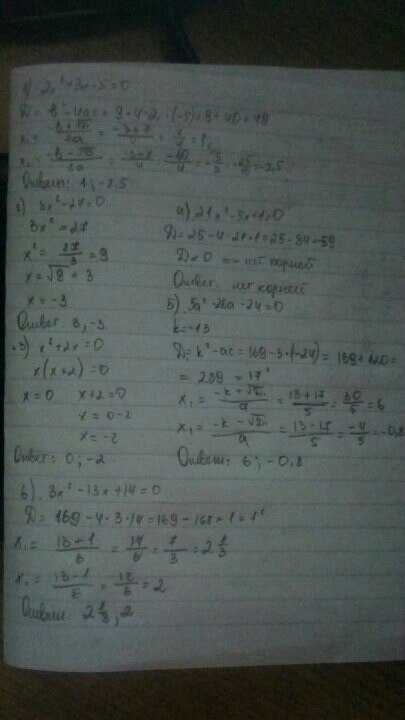 1) 2x² + 3x - 5 = 0
D = b² - 4ac = 9 - 4·2·(-5) = 9 + 40 = 49
x₁ = (-b + √D)/2a = (-3 + 7)/4 = 4/4 = 1
x₂ = (-b - √D)/2a = (-3 - 7)/4 = -10/4 = -5/2 = -2,5
Ответ: 1; -2.5
2) 3x² - 27 = 0
3x² = 27
x² = 27/3 = 9
x = √9 = 3
x = -3
Ответ: 3, -3
3) x² + 2x = 0
x(x + 2) = 0
x = 0 x + 2 = 0
x = 0 - 2
x = -2
Ответ: 0; -2
4) 21x² - 5x + 1 = 0
D = 25 - 4·21·1 = 25 - 84 = -59
D < 0 => нет корней
Ответ: нет корней
5) 5a² - 26a - 24 = 0
k = -13
D₁ = k² - ac = 169 - 5·(-24) = 169 + 120 =
= 289 = 17²
x₁ = (-k + √D₁)/a = (13 + 17)/5 = 30/5 = 6
x₁ = (-k - √D₁)/a = (13 - 17)/5 = -4/5 = -0,8
Ответ: 6; -0,8
6) 3x² - 13x + 14 = 0
D = 169 - 4·3·14 = 169 - 168 = 1 = 1²
x₁ = (13 + 1)/6 = 14/6 = 7/3 = 2 1/3
x₂ = (13 - 1)/6 = 12/6 = 2
Ответ: 2 1/3, 2